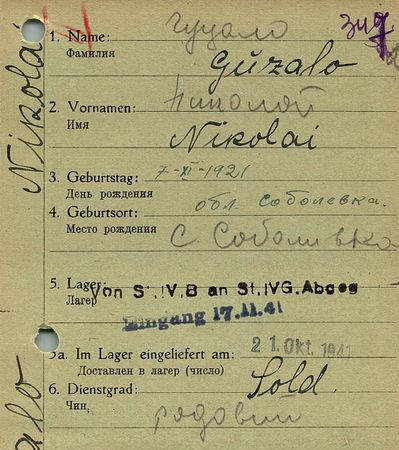 гуцало
1. Name:
Фамилия
Gúzalo
2. Vornamen: николай
Имя
Nikolai
3. Geburtstag: 7-XI-1921
День рождения
4. Geburtsort: обл Соболевка.
Место рождения
С. Соболивка
5. Lager: Von St,IV,B an St,IVG.Abgeg
Лагер
Eingang 17.11.41
5a. Im Lager eingeliefert am: 21. Okt. 1941
Доставлен в лагер (число)
6. Dienstgrad: Sold.
Чин,
рядовий
Nikolai
alo